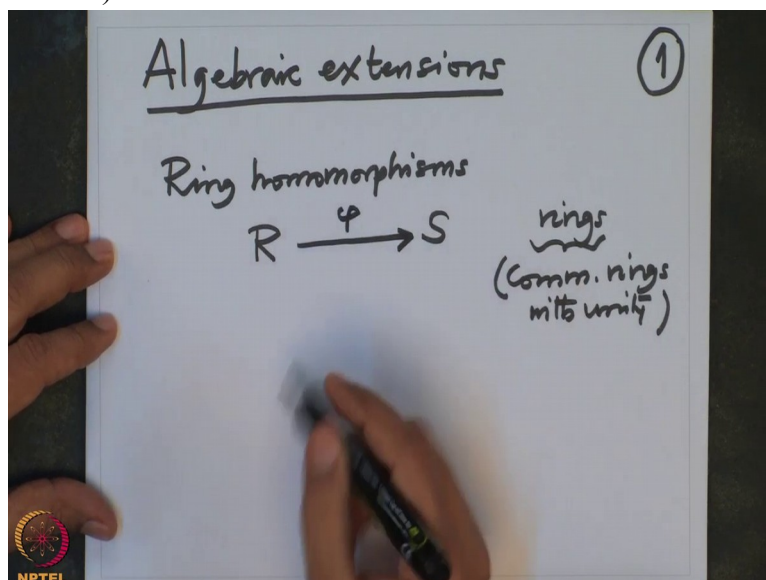 Algebraic extensions
1
Ring homomorphisms
R —φ→ S
rings
(Comm. rings
with unity)
NPTEL